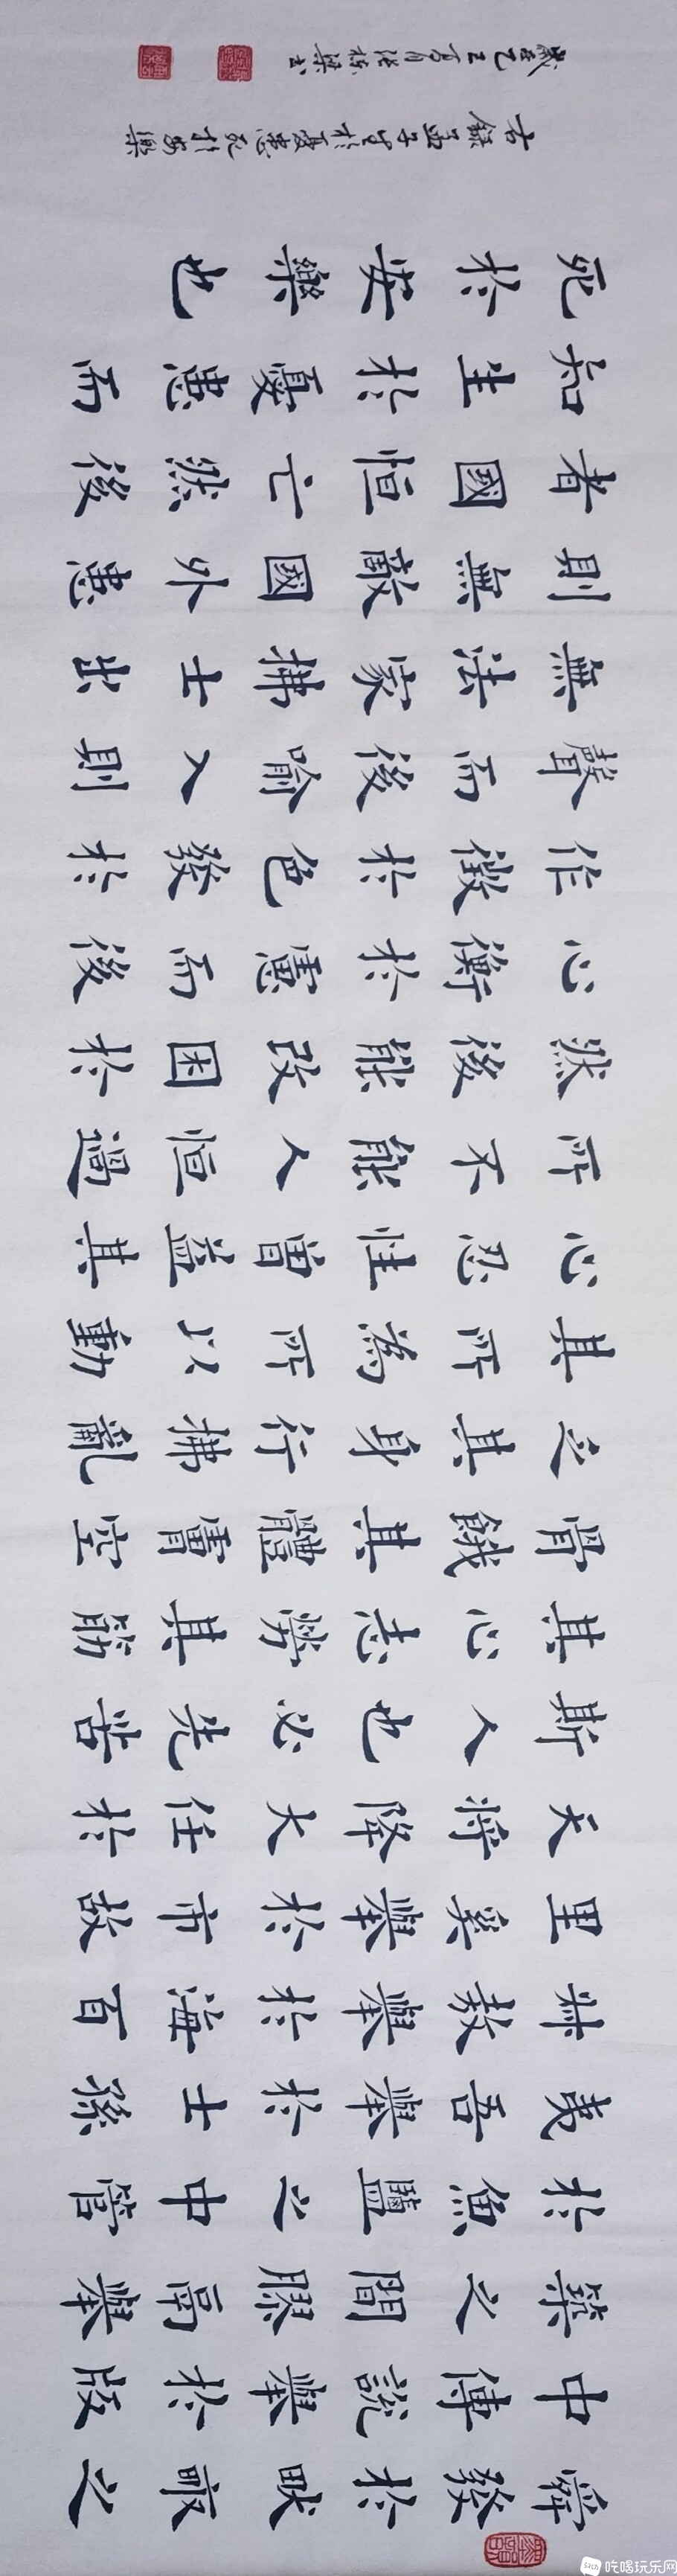 舜發於畎畝之
中傅說舉於版
築之間膠鬲舉
於魚鹽之中管
夷吾舉於士孫
叔敖舉於海百
里奚舉於市故
天將降大任於
斯人也必先苦
其心志勞其筋
骨餓其體膚空
乏其身行拂亂
其所為所以動
心忍性曾益其
所不能人恒過
然後能改困於
心衡於慮而後
作徵於色發於
聲而後喻入則
無法家拂士出
則無敵國外患
者國恒亡然後
知生於憂患而
死於安樂也
右錄孟子生於憂患死於安樂
歲在乙巳夏月
吃喝玩乐网